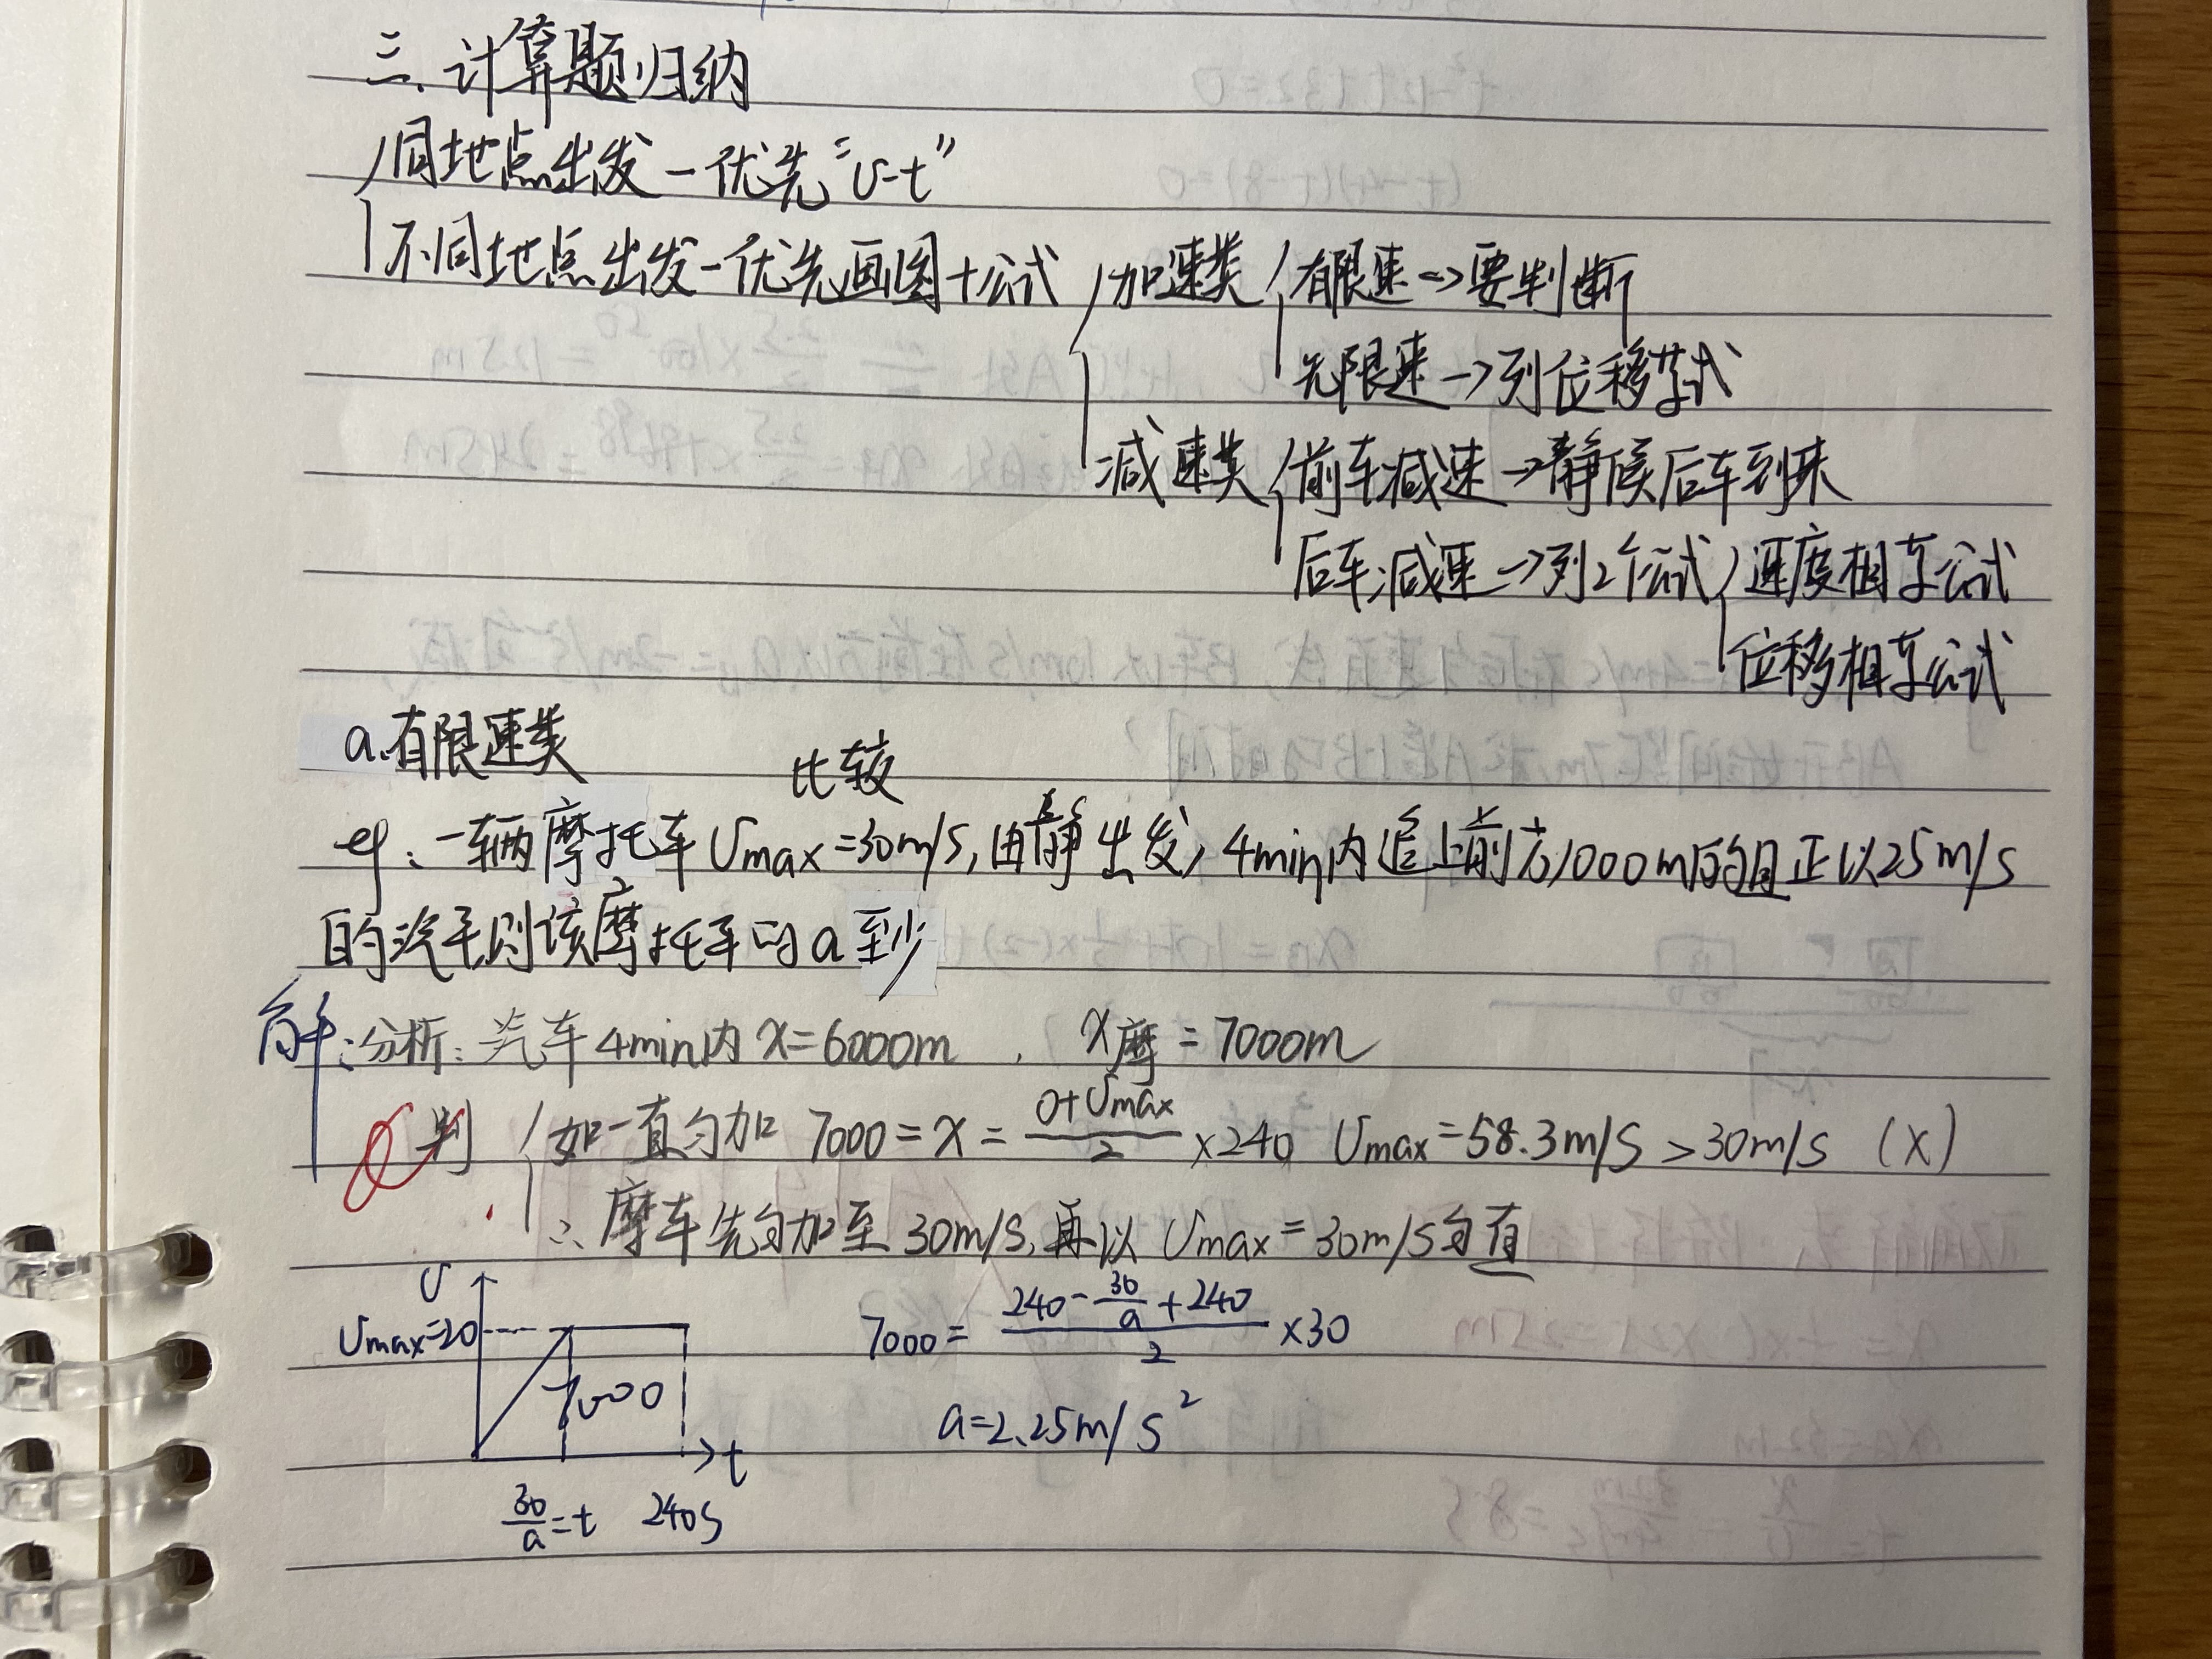 三.计算题归纳
同地点出发-优先"v-t"
不同地点出发-优先画图+公式
加速类
有限速→要判断
无限速→列位移等式
减速类
前车减速→静候后车到来
后车减速→列2个公式
速度相等公式
位移相等公式
a.有限速类
比较
eg:一辆摩托车Vmax=30m/s,由静止出发,4min内追上前方1000m的且正以25m/s
的汽车则该摩托车的a至少
解:分析:汽车4min内x=6000m , x摩=7000m
判
如一直匀加 7000=x=\frac{0+Vmax}{2}×240 Vmax=58.3m/s>30m/s (×)
∴摩车先匀加至30m/s,再以Vmax=30m/s匀直
v
Vmax=20
7000
t
\frac{30}{a}=t 240s
7000=\frac{240-\frac{30}{a}+240}{2}×30
a=2.25m/s²